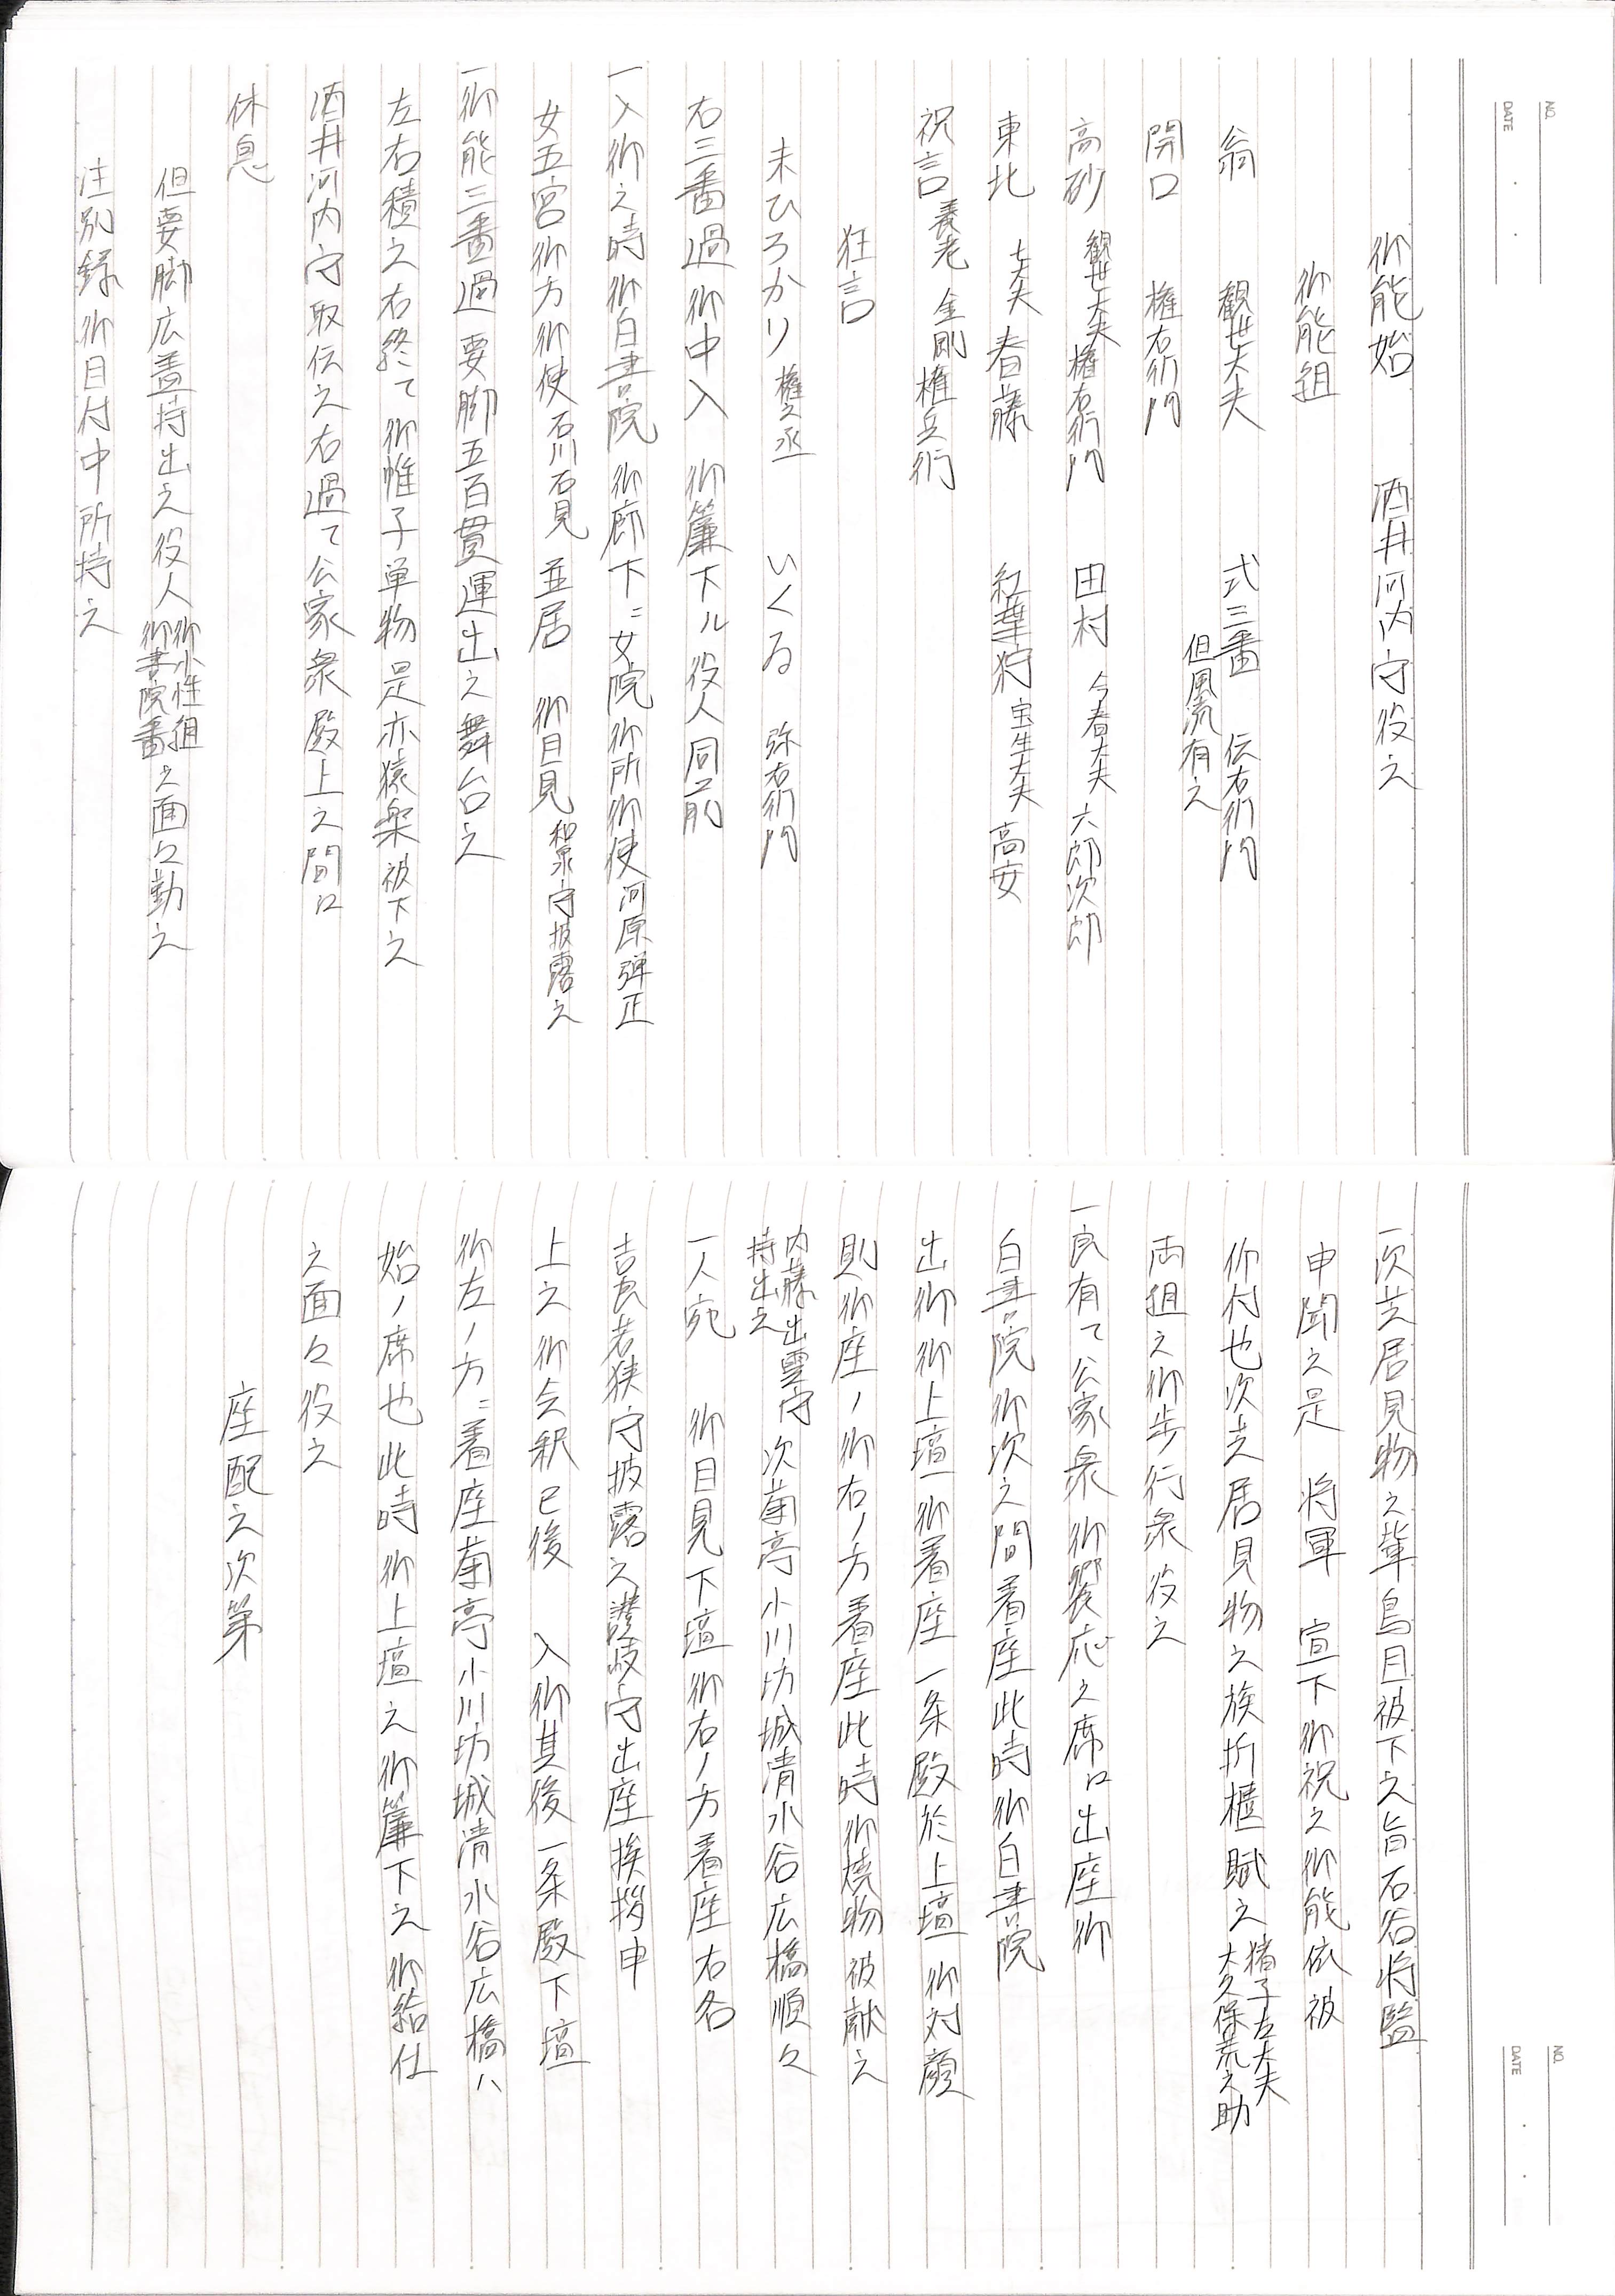 NO.
DATE
御能始　酒井河内守役之
御能組
翁　観世大夫　式三番　伝右衛門
但風流有之
開口　権右衛門
高砂　観世大夫　権右衛門　田村　今春大夫　六郎次郎
東北　七大夫　春藤　紅葉狩　宝生大夫　高安
祝言　養老　金剛　権兵衛
狂言
末ひろかり　権之丞　いくゐ　弥右衛門
右三番過御中入　御簾下ル役人同前
一入御之時御白書院御廊下ニ女院御所御使河原弾正
女五宮御方御使石川石見並居　御目見　和泉守披露之
一御能三番過要脚五百貫運出之舞台之
左右積之右終て御帷子単物是亦猿楽被下之
酒井河内守取伝之右過て公家衆殿上之間江
休息
但要脚広蓋持出之役人　御小性組　御書院番　之面々勤之
注別録御目付中所持之
NO.
DATE
一次芝居見物之輩鳥目被下之旨石谷将監
申聞之是　将軍　宣下御祝之御能依被
仰付也次芝居見物之族折櫃賦之　猪子左大夫　大久保荒之助
両組之御歩行衆役之
一良有て公家衆御饗応之席江出座御
白書院御次之間着座此時御白書院
出御御上壇御着座一条殿於上壇御対顔
則御座ノ御右ノ方着座此時御焼物被献之
内藤出雲守　持出之　次菊亭小川坊城清水谷広橋順々
一人宛　御目見下壇御右ノ方着座右各
吉良若狭守披露之讃岐守出座挨拶申
上之御会釈已後　入御其後一条殿下壇
御左ノ方ニ着座菊亭小川坊城清水谷広橋ハ
始ノ席也此時御上壇之御簾下之御給仕
之面々役之
座配之次第